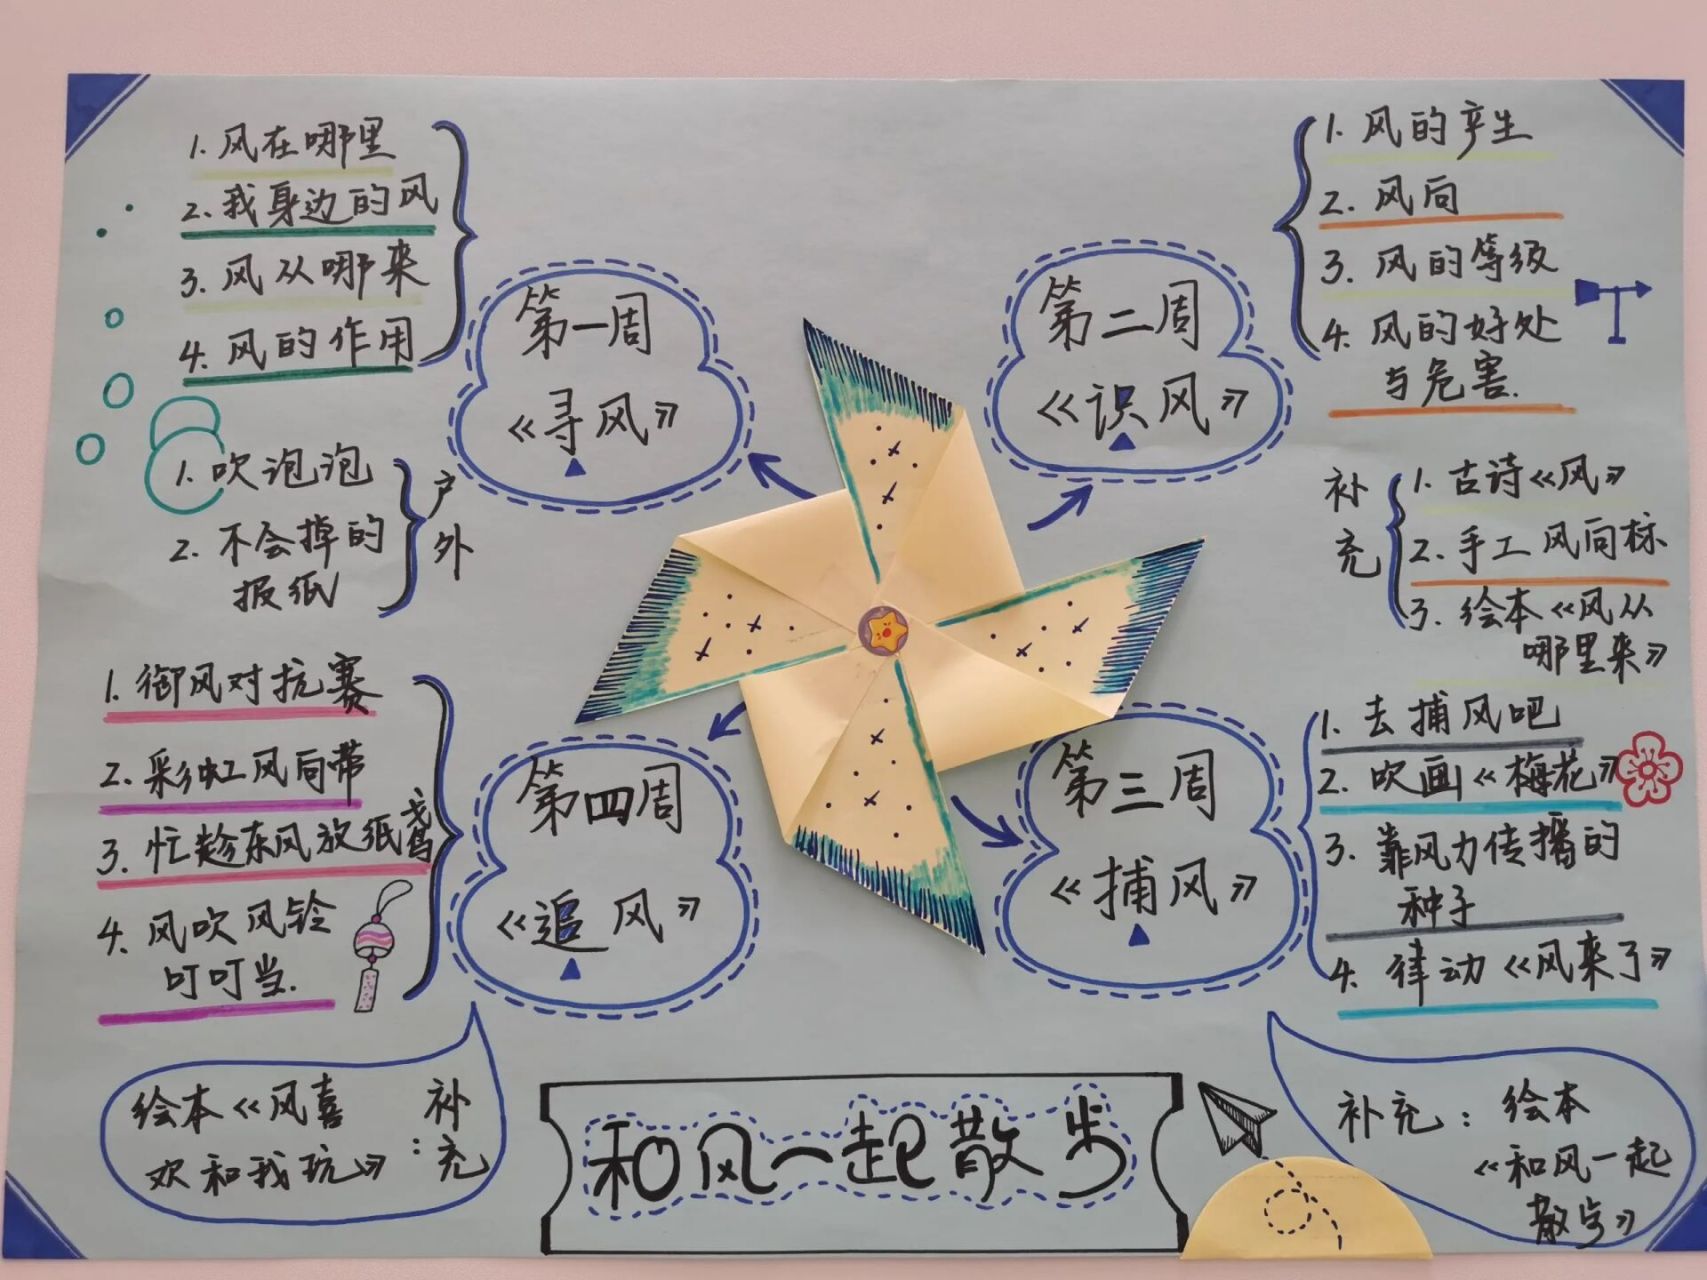 1. 风在哪里
2. 我身边的风
3. 风从哪来
4. 风的作用
第一周
《寻风》
1. 吹泡泡
2. 不会掉的
报纸
户外
第二周
《识风》
1. 风的产生
2. 风向
3. 风的等级
4. 风的好处
与危害.
补充
1. 古诗《风》
2. 手工风向标
3. 绘本《风从
哪里来》
第三周
《捕风》
1. 去捕风吧
2. 吹画《梅花》
3. 靠风力传播的
种子
4. 律动《风来了》
补充: 绘本
《和风一起
散步》
第四周
《追风》
1. 御风对抗赛
2. 彩虹风向带
3. 忙趁东风放纸鸢
4. 风吹风铃
叮叮当.
补充:
绘本《风喜
欢和我玩》
和风一起散步